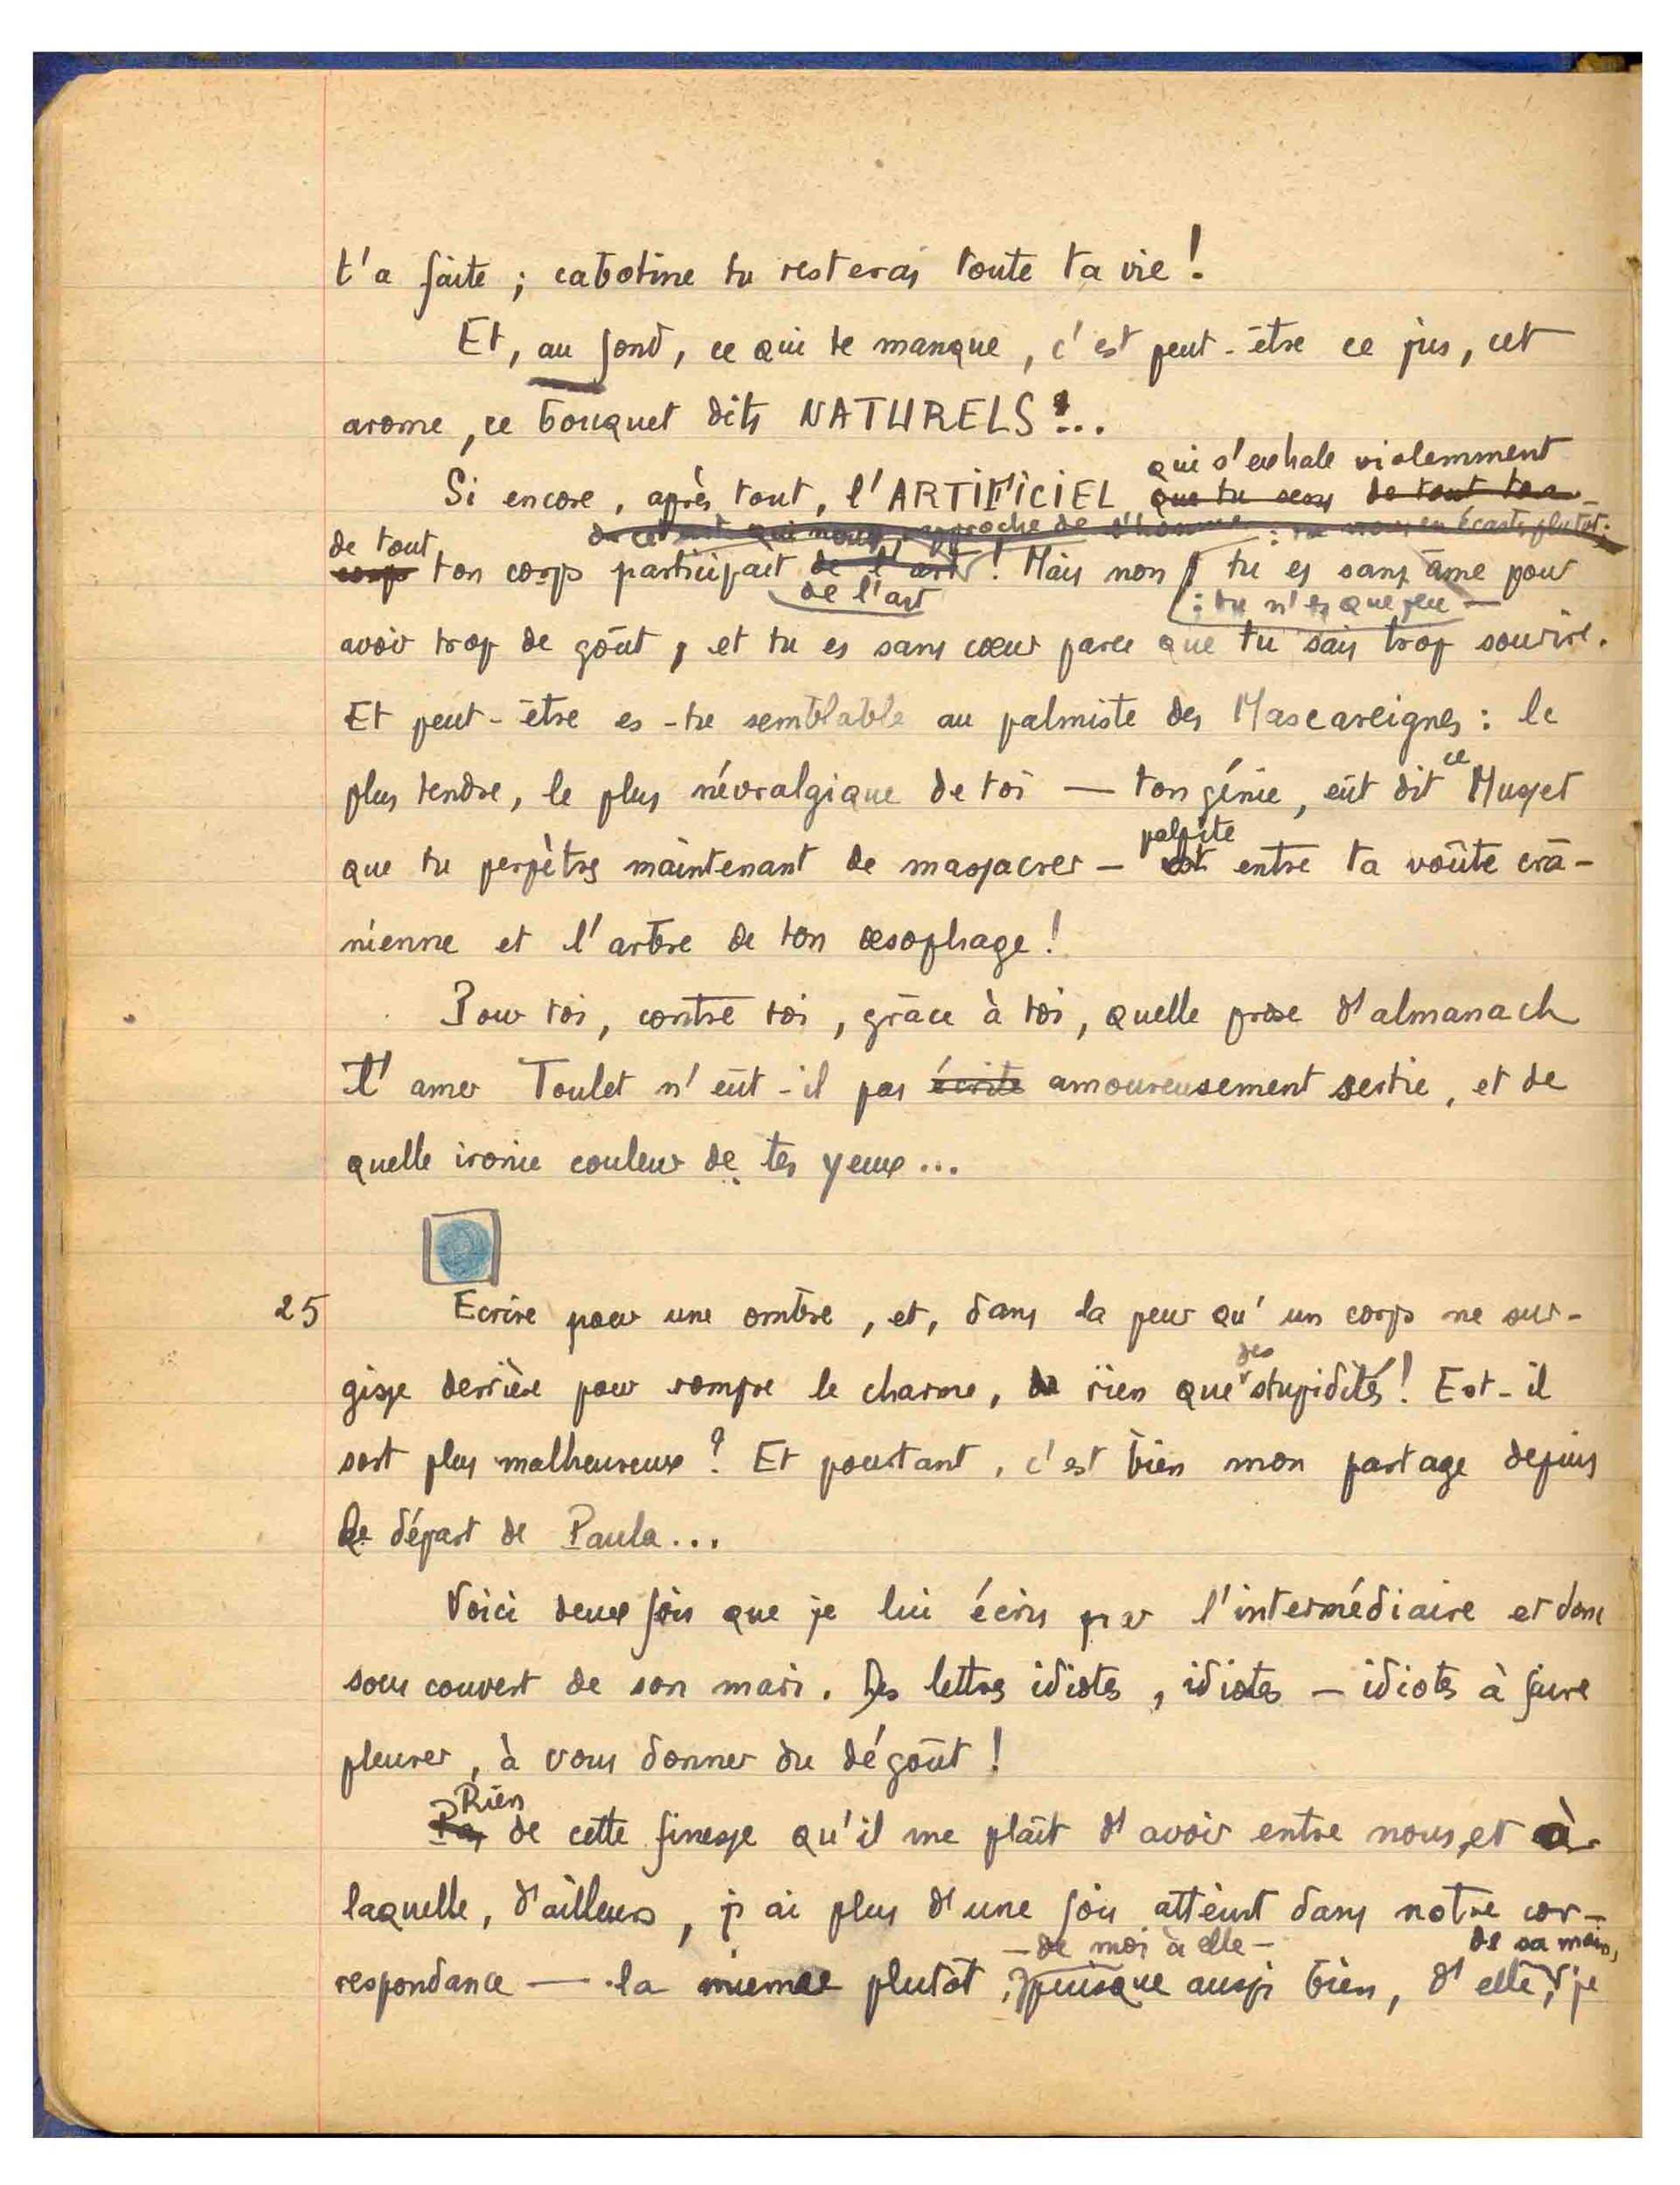 t'a faite ; cabotine tu resteras toute ta vie !
Et, au fond, ce qui te manque, c'est peut-être ce jus, cet
arome, ce bouquet dits NATURELS !...
qui s'exhale violemment
Si encore, après tout, l'ARTIFICIEL que tu sens de tout ton
de cet art qui nous rapproche de l'homme : tu nous en écartes plutôt ;
de tout
corps ton corps participait de l'art ! Mais non tu es sans âme pour
de l'art
: tu n'es que jeu —
avoir trop de goût, et tu es sans cœur parce que tu sais trop sourire.
Et peut-être es-tu semblable au palmiste des Mascareignes : le
ce
plus tendre, le plus névralgique de toi — ton génie, eût dit Musset
palpite
que tu perpètres maintenant de massacrer — est entre ta voûte crâ-
nienne et l'arbre de ton œsophage !
Pour toi, contre toi, grâce à toi, quelle prose d'almanach
l'amer Toulet n'eût-il pas écrite amoureusement sertie, et de
quelle ironie couleur de tes yeux...
25 Ecrire pour une ombre, et, dans la peur qu'un corps ne sur-
des
gisse derrière pour rompre le charme, rien que stupidités ! Est-il
sort plus malheureux ? Et pourtant, c'est bien mon partage depuis
le départ de Paula...
Voici deux fois que je lui écris par l'intermédiaire et donc
sous couvert de son mari. Des lettres idiotes, idiotes — idiotes à faire
pleurer, à vous donner du dégoût !
Rien
Pas de cette finesse qu'il me plaît d'avoir entre nous, et à
laquelle, d'ailleurs, j'ai plus d'une fois atteint dans notre cor-
— de moi à elle — de sa main,
respondance — la mienne plutôt, puisque aussi bien, d'elle, je